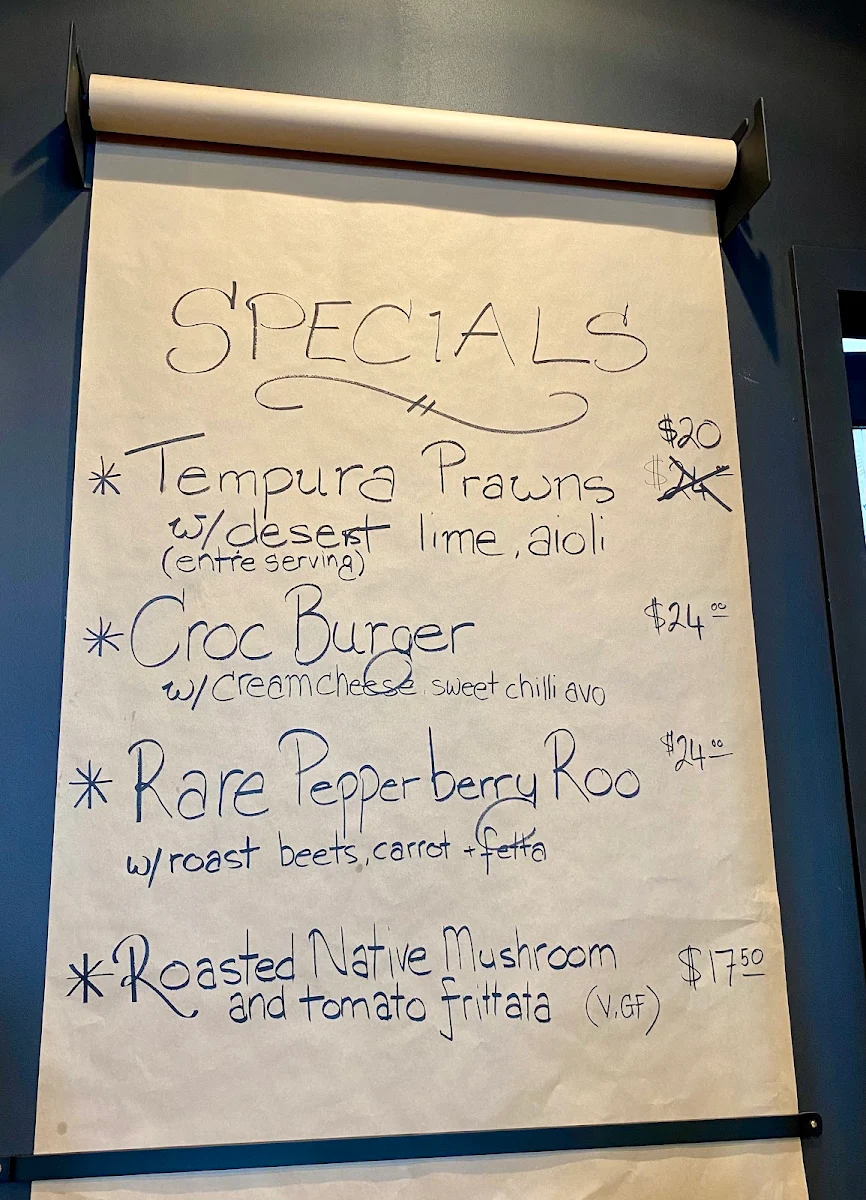 SPECIALS
$20
* Tempura Prawns $24
w/desert lime, aioli
(entrée serving)
* Croc Burger $24.00
w/creamcheese sweet chilli avo
* Rare Pepperberry Roo $24.00
w/roast beets, carrot + fetta
* Roasted Native Mushroom $17.50
and tomato frittata (V.GF)